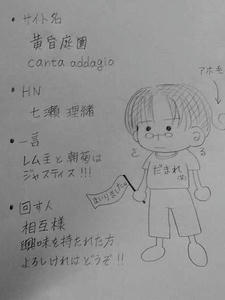 ・サイト名
黄昏庭園
canta addagio
・HN
七瀬 理緒
・一言
レム王と朝菊は
ジャスティス!!!
・回す人
相互様
興味を持たれた方
よろしければどうぞ!!
アホ毛
さる
だまれ
まいりました